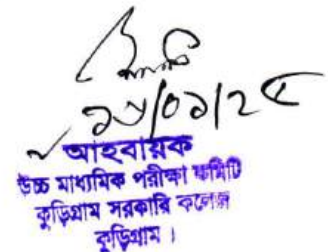 ১৬/০১/২৫
আহবায়ক
উচ্চ মাধ্যমিক পরীক্ষা কমিটি
কুড়িগ্রাম সরকারি কলেজ
কুড়িগ্রাম।